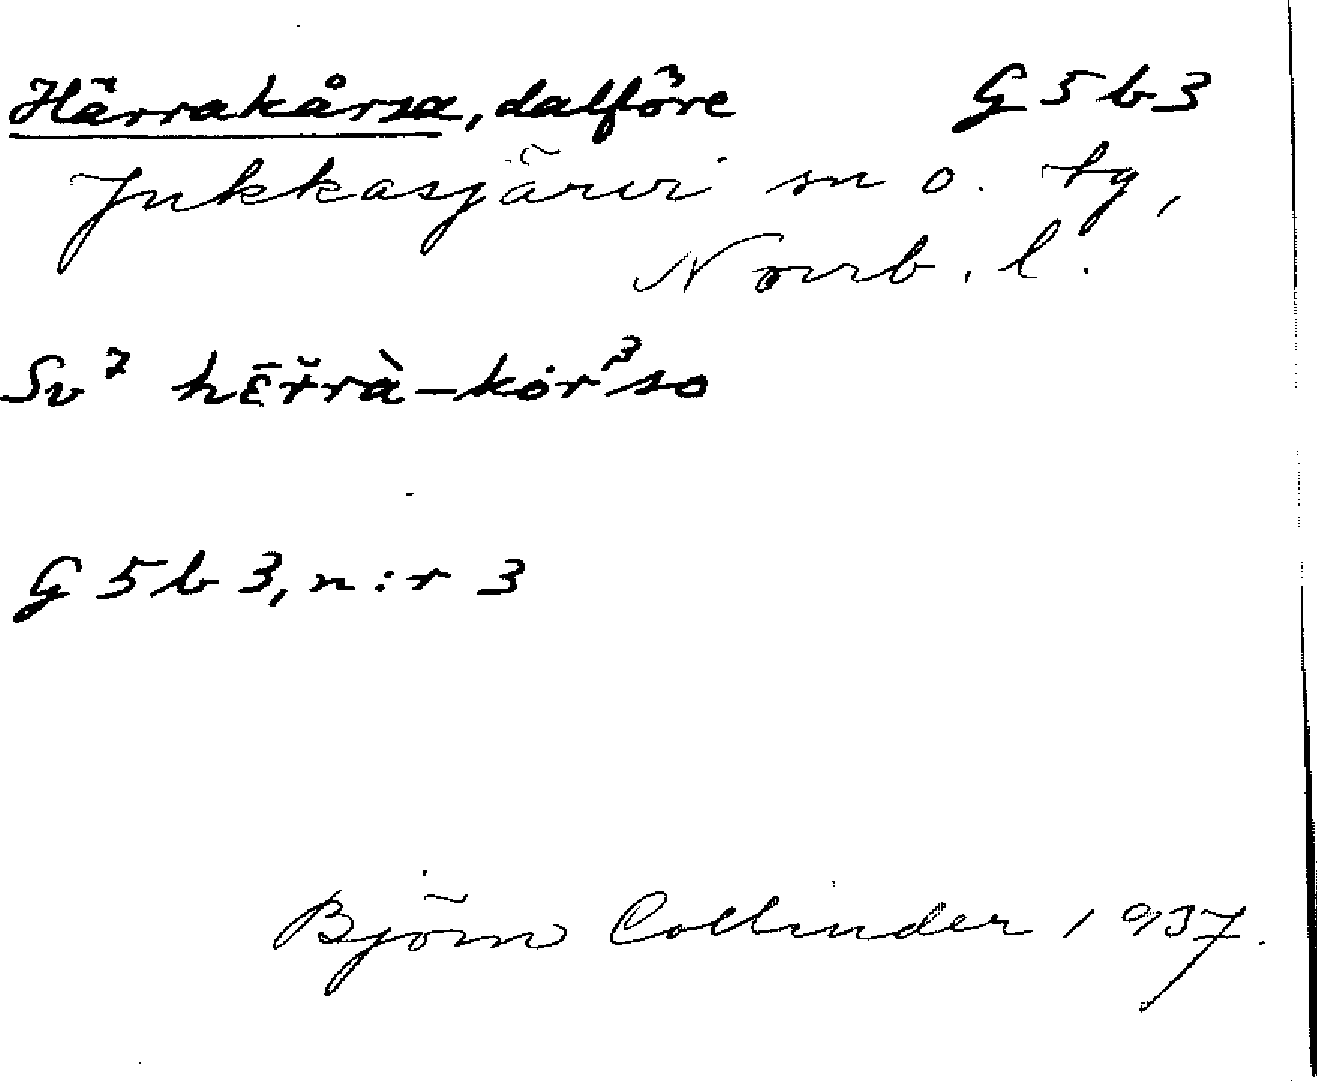 Härrakårsa, dalföre G 5 b 3
Jukkasjärvi sn o. tg,
Norrb. l.
Sv⁷ hɛ̄r̆rà-kȯr³so
G 5 b 3, n:r 3
Björn Collinder 1937.